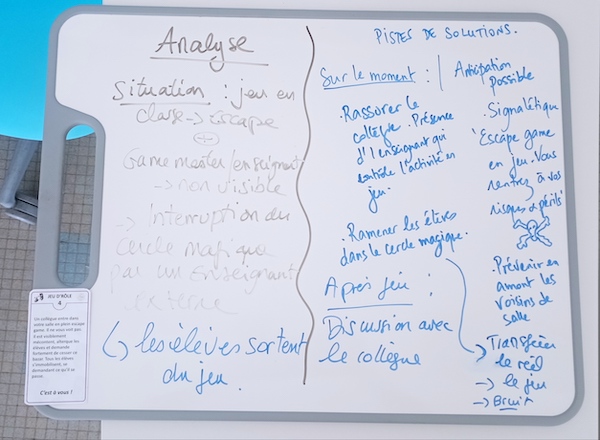 Analyse
Situation : jeu en
classe → Escape
Game master / enseignant
→ non visible
→ Interruption du
cercle magique
par un enseignant
externe
↳ les élèves sortent
du jeu.
PISTES DE SOLUTIONS.
Sur le moment :
. Rassurer le
collègue. Présence
d'1 enseignant qui
entrôle l'activité en
jeu.
. Ramener les élèves
dans le cercle magique.
Après jeu :
Discussion avec
le collègue
Anticipation
possible
. Signalétique
"Escape game
en jeu. Vous
rentrez à vos
risques & périls"
. Prévenir en
amont les
voisins de
salle
→ Transférer
le réel
→ le jeu
→ Bruit
JEU D'RÔLE
4
Un collègue entre dans
votre salle en plein escape
game. Il ne vous voit pas.
Il est visiblement
mécontent, attaque les
élèves et demande
fortement de cesser ce
bazar. Tous les élèves
s'immobilisent, se
demandant ce qu'il se
passe.
C'est à vous !